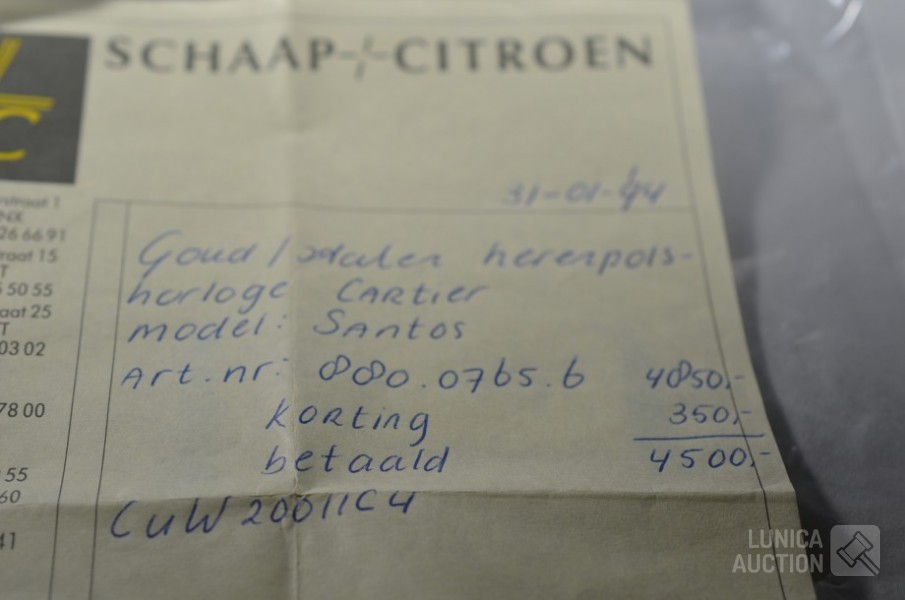 SCHAAP CITROEN
C
31-01-94
Goud/stalen herenpols-
horloge Cartier
model: Santos
Art.nr: 880.0765.6 4850,-
Korting 350,-
betaald 4500,-
CuW20011C4
straat 1
NX
26 66 91
raat 15
T
50 55
aat 25
T
03 02
78 00
55
60
41
LUNICA
AUCTION